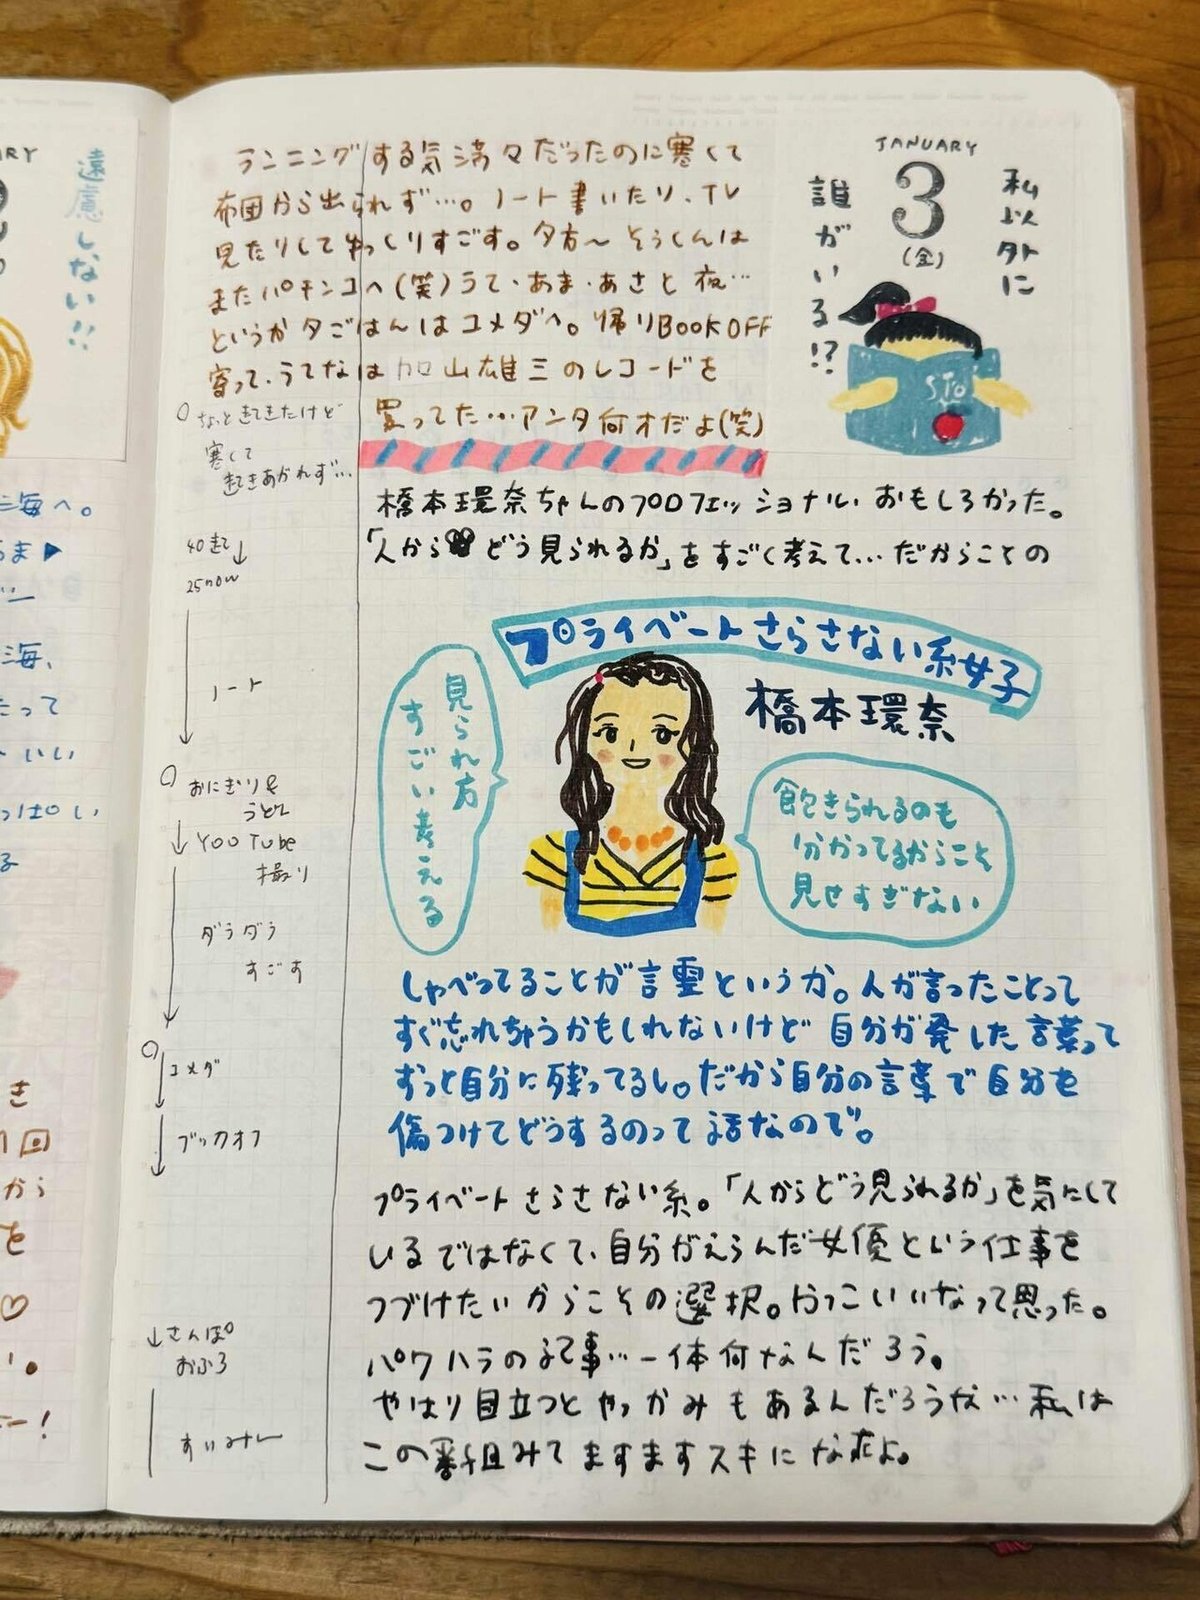 JANUARY
3
(金)
私以外に
誰がいる!?
STO
ランニングする気満々だったのに寒くて
布団から出られず…。ノート書いたり、TV
見たりしてゆっくりすごす。夕方〜そうくんは
またパチンコへ(笑)うて・あま・あさと夜…
というか夕ごはんはコメダへ。帰りBOOKOFF
寄って、うてなは加山雄三のレコードを
買ってた…アンタ何才だよ(笑)
橋本環奈ちゃんのプロフェッショナル おもしろかった。
「人からどう見られるか」をすごく考えて…だからことの
プライベートさらさない系女子
橋本環奈
見られ方
すごい考える
飽きられるのも
分かってるからこそ
見せすぎない
しゃべってることが言霊というか。人が言ったことって
すぐ忘れちゃうかもしれないけど 自分が発した言葉って
ずっと自分に残ってるし。だから自分の言葉で自分を
傷つけてどうするのって話なので。
プライベートさらさない系。「人からどう見られるか」を気にして
いるではなくて、自分がえらんだ女優という仕事を
つづけたいからこその選択。かっこいいなって思った。
パワハラの記事…一体何なんだろう。
やはり目立つとやっかみもあるんだろうな…私は
この番組みてますますスキになったよ。
寒くて
起きあがれず…
40起
25now
ノート
おにぎり&
うどん
YOUTube
撮り
ダラダラ
すごす
コメダ
ブックオフ
さんぽ
おふろ
すいみん
ARY
遠慮しない!!
海へ。
海、
たって
いい
っぽい
き
回
から
を
♡
い。
ー!